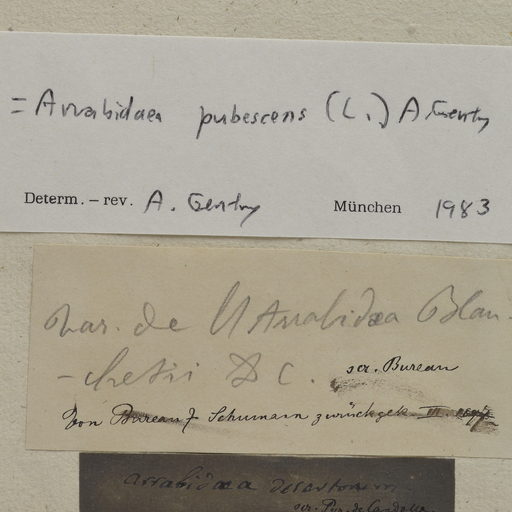 = Arrabidaea pubescens (L.) A.Gentry
Determ. – rev. A. Gentry München 1983
var. de l'Arrabidaea Blan-
-cheti DC. scr. Bureau
Von Bureau & Schumann zurückgek. III.
arrabidaea desertorum
scr. Pyr. de Candolle.